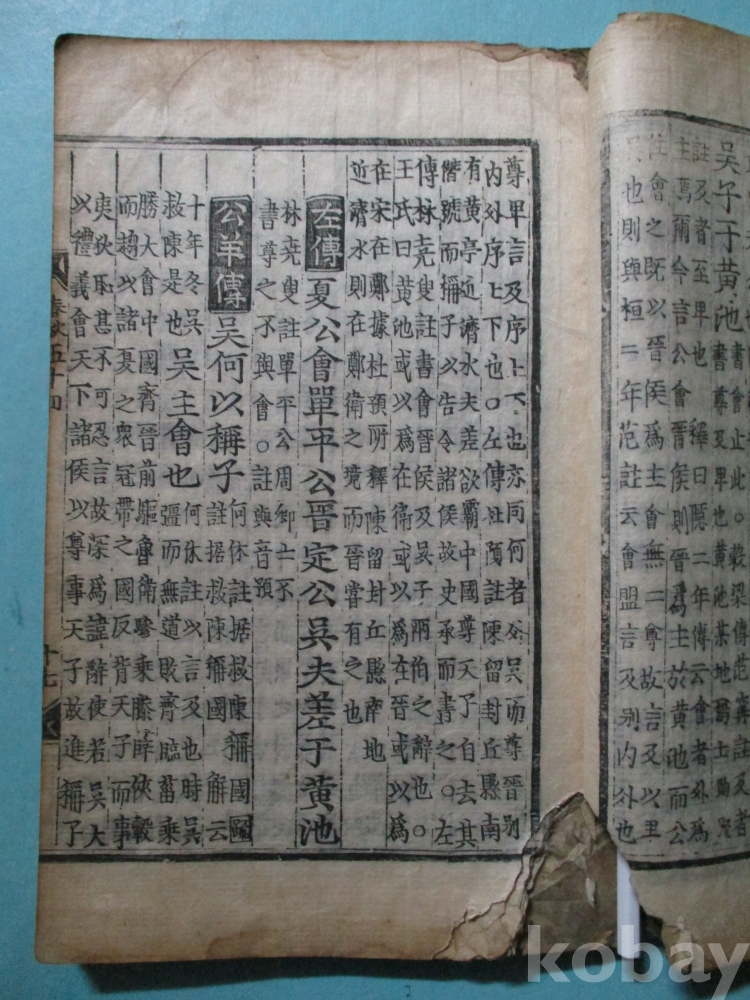 吳子于黃池
書會止此。穀梁傳註及者
書尊及卑也黃池某地
註及者至卑也 釋曰隱二年傳云會者外爲
主焉爾今言公會晉侯則晉爲主於黃池而公
往會之既以晉侯爲主會無二尊故言及以
吳也則與桓二年范註云會盟言及别內外也
尊卑言及序上下也亦同何者公吳而尊晉别
內外序上下也。左傳杜預註陳留封丘縣南
有黃亭近濟水夫差欲霸中國尊天子自去其
僭號而稱子以告令諸侯故史承而書之。左
傳林堯叟註書會晉侯及吳子兩伯之辭也。
王氏曰黃池或以爲在衛或以爲在晉或以爲
在宋在鄭據杜預所釋陳留封丘縣南地
近濟水則在鄭衛之境而晉嘗有之也
左傳 夏公會單平公晉定公吳夫差于黃池
林堯叟註單平公周卿士不
書尊之不與會。註與音預
公羊傳 吳何以稱子
何休註据救陳稱國
註据救陳稱國解云
十年冬吳
救陳是也
吳主會也
何休註以言及也時吳
彊而無道敗齊臨菑乘
勝大會中國齊晉前驅魯衛驂乘滕薛俠轂
而趨以諸夏之衆冠帶之國反背天子而事
夷狄恥甚不可忍言故深爲諱辭使若吳大
以禮義會天下諸侯以尊事天子故進稱子
春秋五十四
十七
kobay